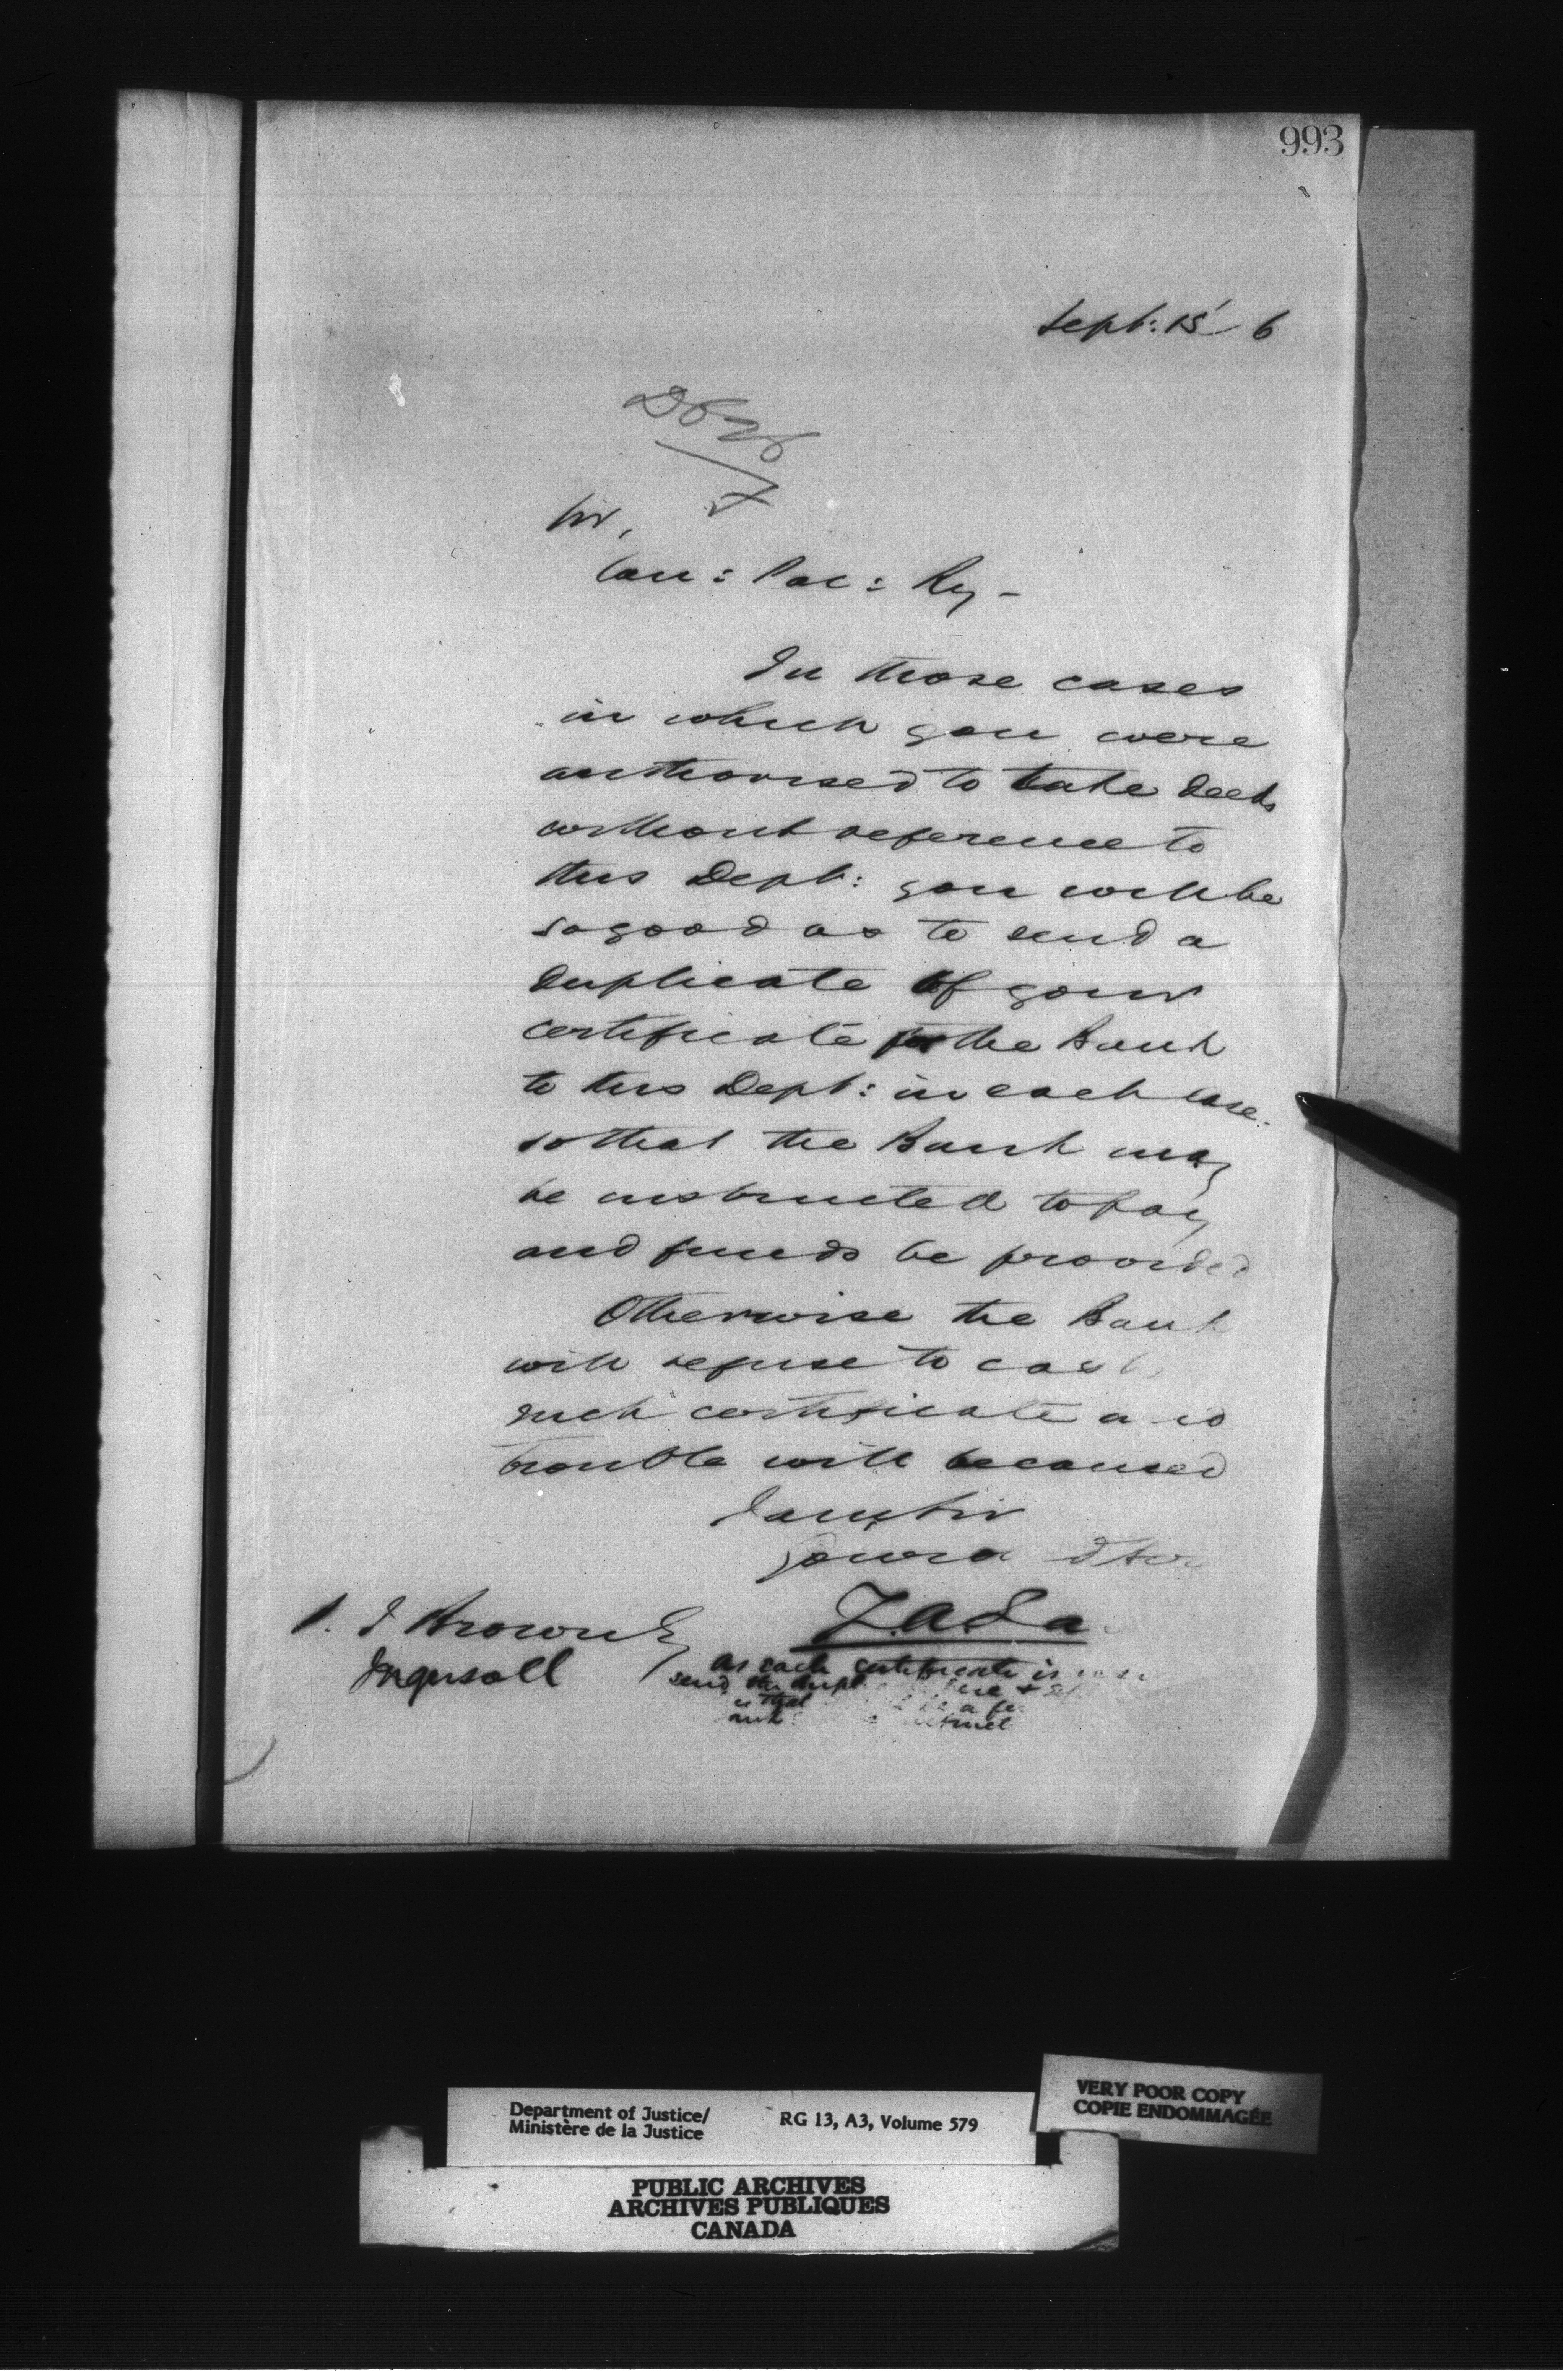 993
Sept: 15 6
Sir,
Can: Pac: Ry -
In those cases
in which you were
authorised to take deeds
without reference to
this Dept: you will be
so good as to send a
duplicate of your
certificate for the Bank
to this Dept: in each case
so that the Bank may
be instructed to pay
and funds be provided
Otherwise the Bank
will refuse to cash
such certificate and
trouble will be caused
I am Sir
Your
J. Brown Esq
Ingersoll
as each certificate is
send the dupl
Department of Justice/
Ministère de la Justice
RG 13, A3, Volume 579
VERY POOR COPY
COPIE ENDOMMAGÉE
PUBLIC ARCHIVES
ARCHIVES PUBLIQUES
CANADA